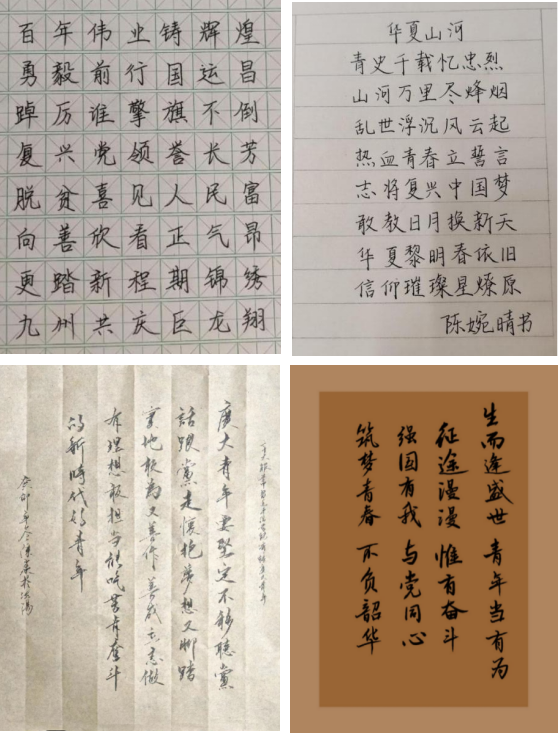 百年伟业铸辉煌
勇毅前行国运昌
踔厉谁擎旗不倒
复兴党领誉长芳
脱贫喜见人民富
向善欣看正气昂
更踏新程期锦绣
九州共庆巨龙翔
华夏山河
青史千载忆忠烈
山河万里尽烽烟
乱世浮沉风云起
热血青春立誓言
志将复兴中国梦
敢教日月换新天
华夏黎明春依旧
信仰璀璨星燎原
陈婉晴书
广大青年要坚定不移聽黨
話跟黨走懷抱夢想又腳踏
實地敢為又善作善成立志做
有理想敢担当能吃苦肯奋斗
的新時代好青年
生而逢盛世 青年当有为
征途漫漫 惟有奋斗
强国有我 与党同心
筑梦青春 不负韶华